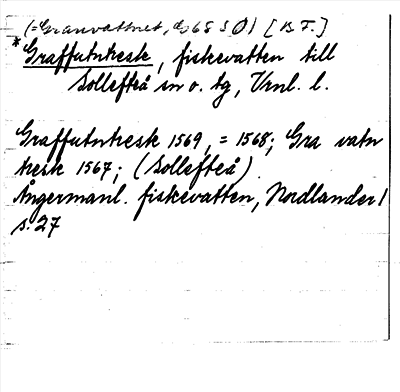 (= Granvattnet, 68 S Ø) [B F.]
* Graffutnkesk, fiskevatten till
Sollefteå sn o. tg, Vrnl. l.
Graffutnkesk 1569, = 1568; Gra vatn
kesk 1567; (Sollefteå)
Ångermanl. fiskevatten, Nordlander 1
s. 27